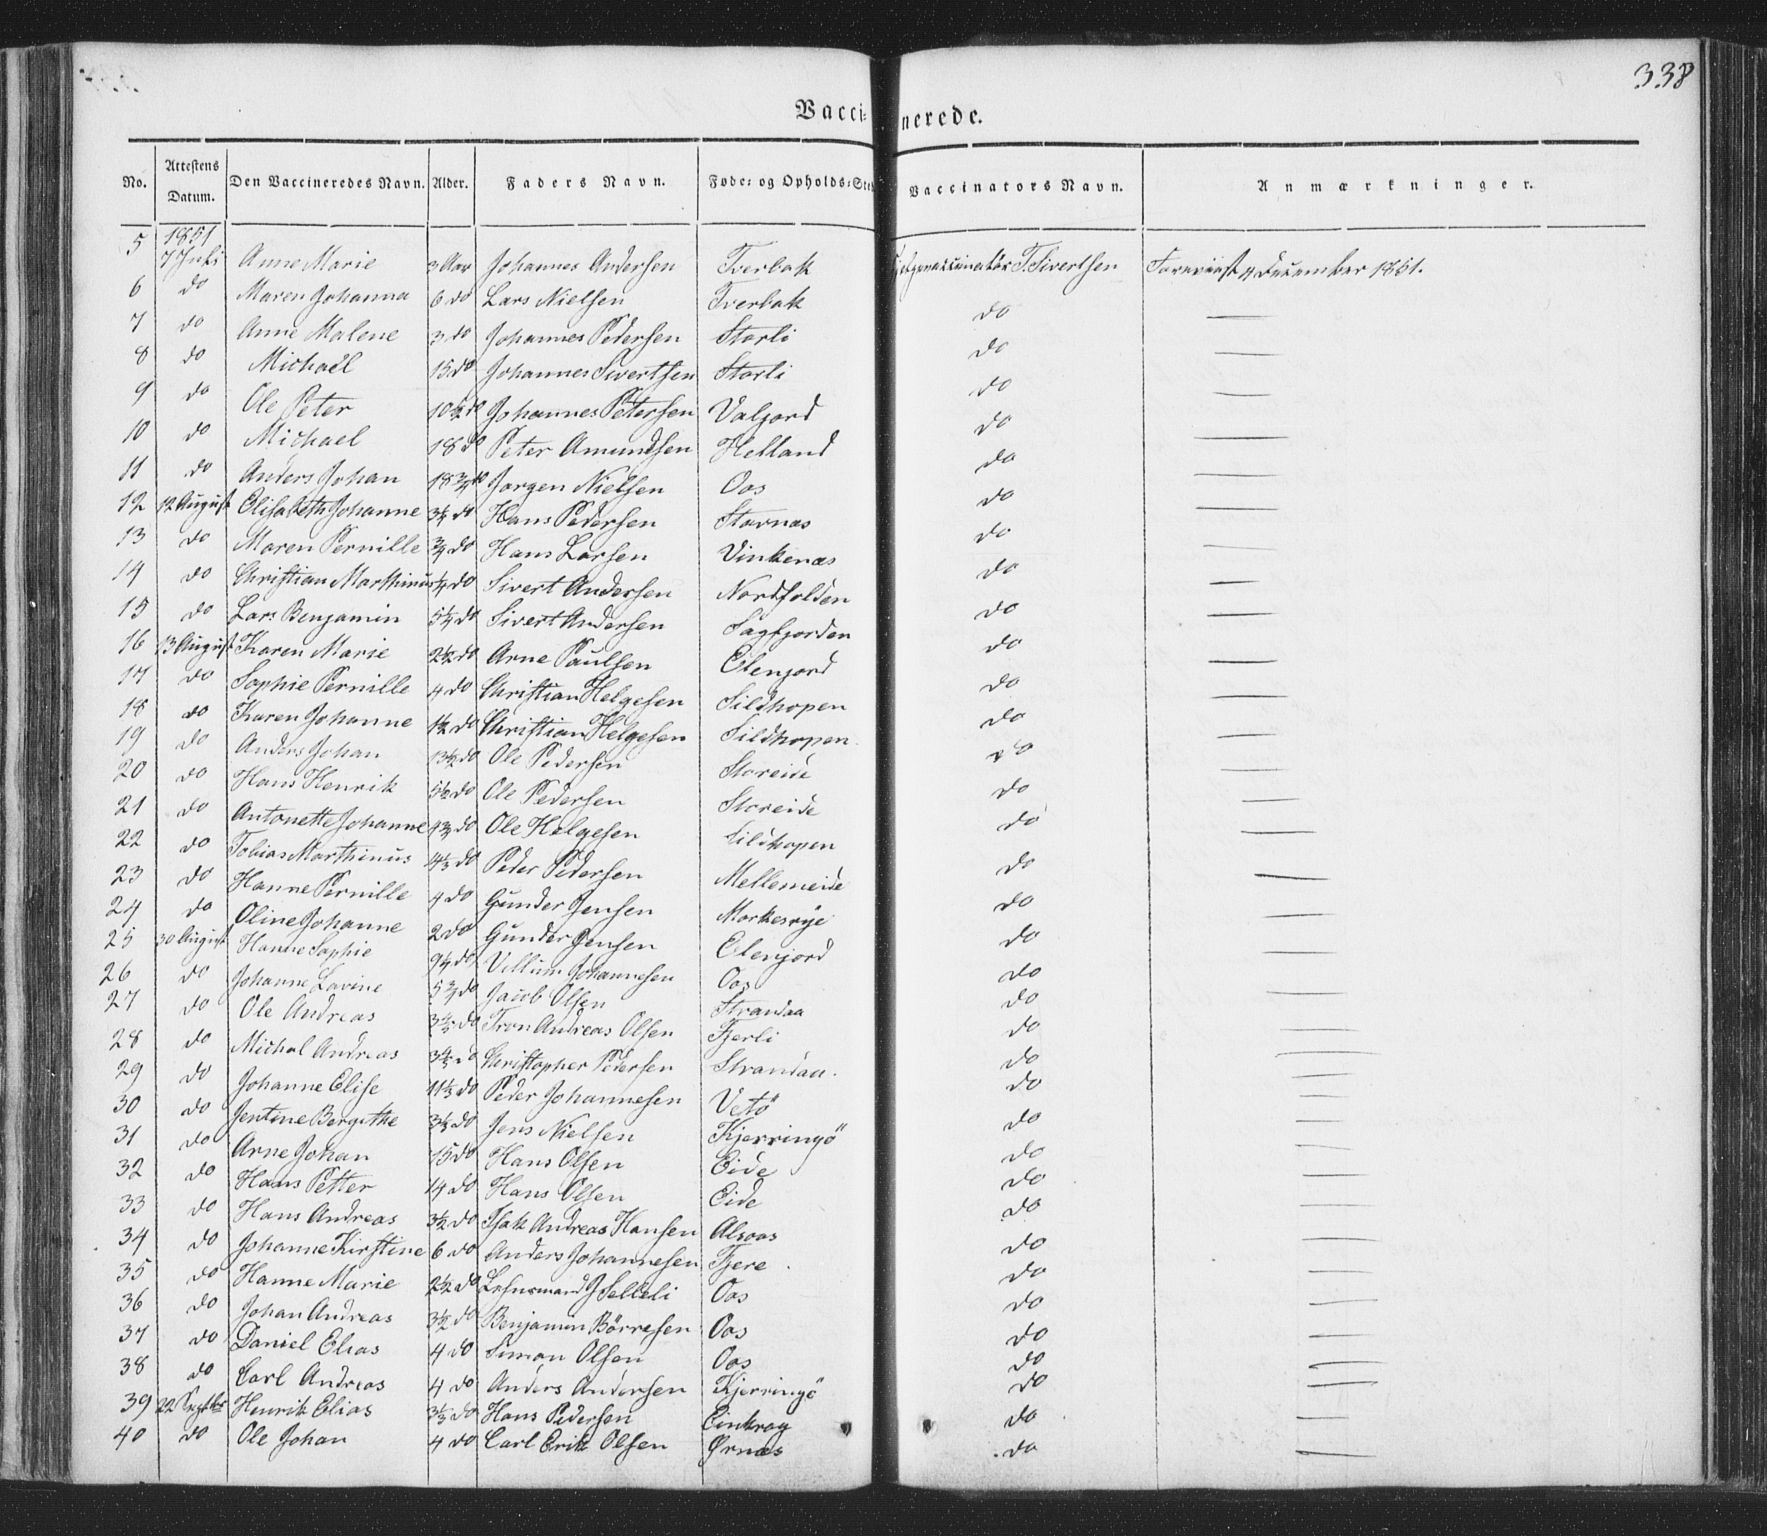 338
Vaccinerede.
No. Attestens Datum. Den Vaccineredes Navn. Alder. Faders Navn. Føde- og Opholds-Sted Vaccinators Navn. Anmærkninger.
1851
5 7 Juli Anne Marie 3 Aar Johannes Andersen Tverbak T. Sivertsen Foreviist 4 December 1851.
6 do Maren Johanna 6 do Lars Nielsen Tverbak do —
7 do Anne Malene 3 do Johannes Pedersen Storli do —
8 do Michaël 15 do Johannes Sivertsen Storli do —
9 do Ole Peter 10½ do Johannes Petersen Valjord do —
10 do Michael 18 do Peter Amundsen Helland do —
11 do Anders Johan 18¾ do Jørgen Nielsen Oos do —
12 12 August Elisabeth Johanne 3¼ do Hans Pedersen Stavnæs do —
13 do Maren Pernille ¾ do Hans Larsen Vinkenæs do —
14 do Christian Marthinus ¼ do Sivert Andersen Nordfolden do —
15 do Lars Benjamin 5¼ do Sivert Andersen Sagfjorden do —
16 13 August Karen Marie 2½ do Arne Paulsen Elenjord do —
17 do Sophie Pernille 4 do Christian Helgesen Sildhopen do —
18 do Karen Johanne 1½ do Christian Helgesen Sildhopen do —
19 do Anders Johan 13½ do Ole Pedersen Storeide do —
20 do Hans Henrik 5½ do Ole Pedersen Storeide do —
21 do Antonette Johanne 4¾ do Ole Helgesen Sildhopen do —
22 do Tobias Marthinus 4⅓ do Peder Pedersen Mellemeide do —
23 do Hanne Pernille 4 do Gunder Jensen Morkesvye do —
24 do Oline Johanne 2 do Gunder Jensen Elenjord do —
25 30 August Hanne Sophie 9¼ do Villum Johannesen Oos do —
26 do Johanne Lavine 5¾ do Jacob Olsen Strandaa do —
27 do Ole Andreas do Tron Andreas Olsen Fjerli do —
28 do Michal Andreas do Christopher Pedersen Strandaa. do —
29 do Johanne Elise 11⅓ do Peder Johannesen Vetö do —
30 do Jentine Bergithe 3⅓ do Jens Nielsen Kjerringö do —
31 do Arne Johan 15 do Hans Olsen Eide do —
32 do Hans Petter 14 do Hans Olsen Eide do —
33 do Hans Andreas 3½ do Isak Andreas Hansen Alsoos do —
34 do Johanne Kirstine 6 do Anders Johannesen Fjere do —
35 do Hanne Marie 2½ do Lehnsmand J Selleli Oos do —
36 do Johan Andreas 3½ do Benjamin Börresen Oos do —
37 do Daniel Elias 4 do Simon Olsen Oos do —
38 do Carl Andreas 4 do Anders Andersen Kjerringö do —
39 22 Septbr Henrik Elias 3⅓ do Hans Pedersen Einkrog do —
40 do Ole Johan 4 do Carl Erik Olsen Ørnæs do —